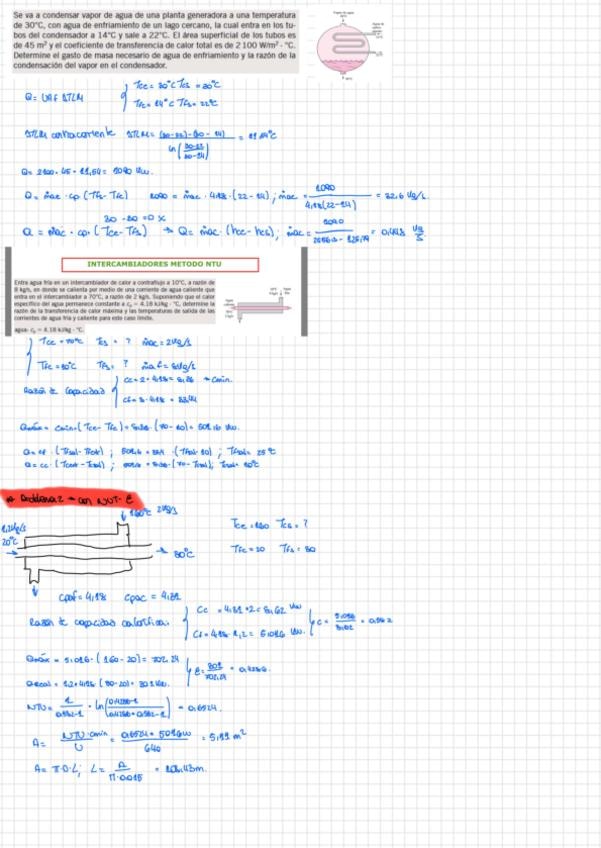 Se va a condensar vapor de agua de una planta generadora a una temperatura
de 30°C, con agua de enfriamiento de un lago cercano, la cual entra en los tu-
bos del condensador a 14°C y sale a 22°C. El área superficial de los tubos es
de 45 m² y el coeficiente de transferencia de calor total es de 2 100 W/m² · °C.
Determine el gasto de masa necesario de agua de enfriamiento y la razón de la
condensación del vapor en el condensador.
Q = UAF ΔTLM
Tce = 30°C Tcs = 30°C
Tfe = 14°C Tfs = 22°C
ΔTLM contracorriente ΔTLM = (30-22)-(30-14) / ln(30-22/30-14) = 11,54°C
Q = 2100 · 45 · 11,54 = 1090 kw.
Q = ṁac · cp · (Tfs - Tfe) 1090 = ṁac · 4,18 · (22-14) ; ṁac = 1090 / 4,18(22-14) = 32,6 kg/s
30 - 30 = 0 x
Q = ṁac · cp · (Tce - Tfs) → Q = ṁac · (hce - hcs) ; ṁac =
INTERCAMBIADORES METODO NTU
Entra agua fría en un intercambiador de calor a contraflujo a 10°C, a razón de
8 kg/h, en donde se calienta por medio de una corriente de agua caliente que
entra en el intercambiador a 70°C, a razón de 2 kg/h. Suponiendo que el calor
específico del agua permanece constante a cp = 4.18 kJ/kg · °C, determine la
razón de la transferencia de calor máxima y las temperaturas de salida de las
corrientes de agua fría y caliente para este caso límite.
agua: cp = 4.18 kJ/kg · °C.
Tce = 70°C Tcs = ? ṁac = 2kg/s
Tfe = 10°C Tfs = ? ṁaf = 8kg/s
Razón de capacidad
Cc = 2 · 4,18 = 8,36 → Cmin.
Cf = 8 · 4,18 = 33,44
Qmáx = Cmin · (Tce - Tfe) = 8,36 · (70-10) = 501,6 kw.
* Problema 2 → con NUT-ε
160°C 2kg/s
1,2kg/s
20°C
80°C
Tce = 160 Tcs = ?
Tfe = 20 Tfs = 80
cpaf = 4,18 cpac = 4,31
Razón de capacidad calorífica.
Cc = 4,31 · 2 = 8,62 kw
Cf = 4,18 · 1,2 = 5,016 kw.
c = 5,016 / 8,62 = 0,582
Qmáx = 5,016 · (160-20) = 702,24
Qreal = 1,2 · 4,18 · (80-20) = 301 kw.
ε = 301 / 702,24 = 0,4286
NTU = 1 / 0,582-1 · ln(0,4286-1 / 0,4286 · 0,582-1) = 0,6524
A = NTU · Cmin / U = 0,6524 · 5016w / 640 = 5,11 m²
A = π · D · L ; L = A / π · 0,015 = 108,43m.